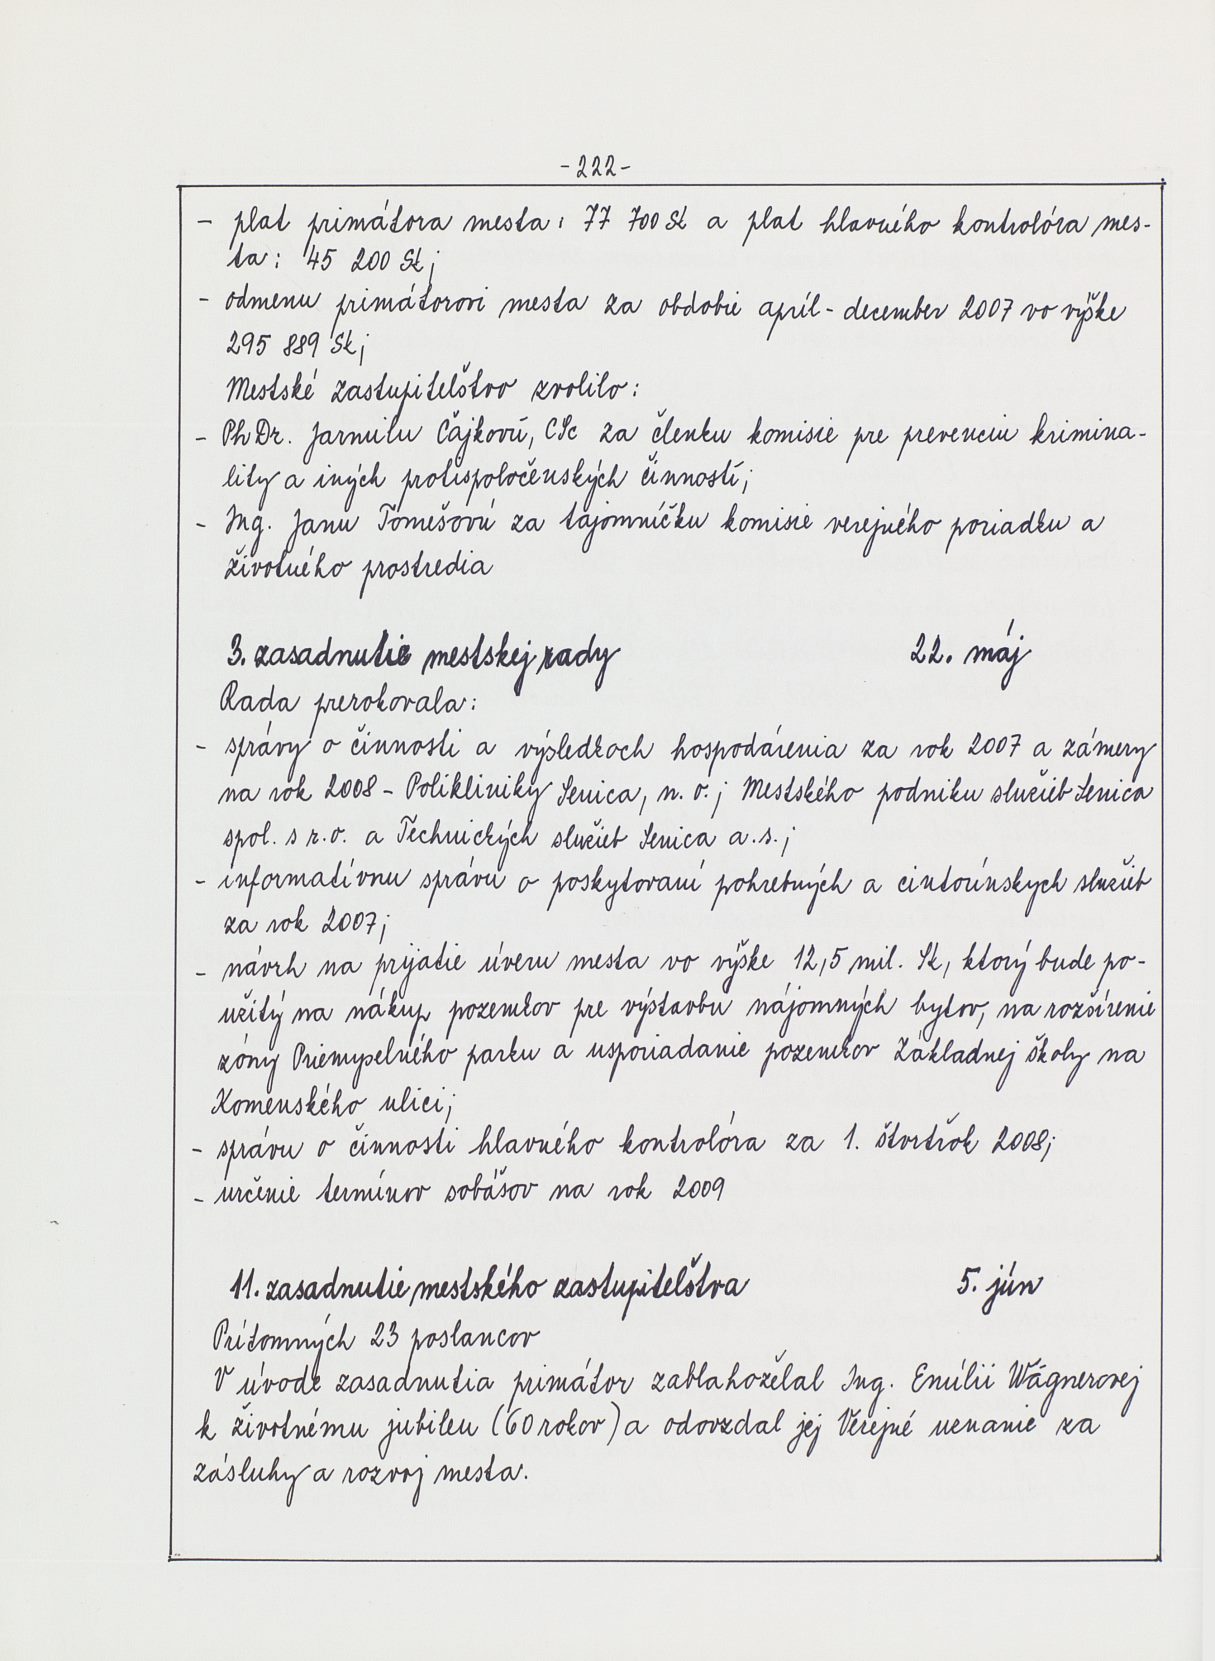 -222-
- plat primátora mesta: 77 700 Sk a plat hlavného kontrolóra mes-
ta: 45 200 Sk;
- odmenu primátorovi mesta za obdobie apríl - december 2007 vo výške
295 889 Sk;
Mestské zastupiteľstvo zvolilo:
- PhDr. Jarmilu Čajkovú, CSc za členku komisie pre prevenciu krimina-
lity a iných protispoločenských činností;
- Ing. Janu Tomešovú za tajomníčku komisie verejného poriadku a
životného prostredia
3. zasadnutie mestskej rady 22. máj
Rada prerokovala:
- správy o činnosti a výsledkoch hospodárenia za rok 2007 a zámery
na rok 2008 - Polikliniky Senica, n. o.; Mestského podniku služieb Senica
spol. s r.o. a Technických služieb Senica a.s.;
- informatívnu správu o poskytovaní pohrebných a cintorínskych služieb
za rok 2007;
- návrh na prijatie úveru mesta vo výške 12,5 mil. Sk, ktorý bude po-
užitý na nákup pozemkov pre výstavbu nájomných bytov, na rozšírenie
zóny Priemyselného parku a usporiadanie pozemkov Základnej školy na
Komenského ulici;
- správu o činnosti hlavného kontrolóra za 1. štvrťrok 2008;
- určenie termínov sobášov na rok 2009
11. zasadnutie mestského zastupiteľstva 5. jún
Prítomných 23 poslancov
V úvode zasadnutia primátor zablahoželal Ing. Emílii Wágnerovej
k životnému jubileu (60 rokov) a odovzdal jej Verejné uznanie za
zásluhy a rozvoj mesta.